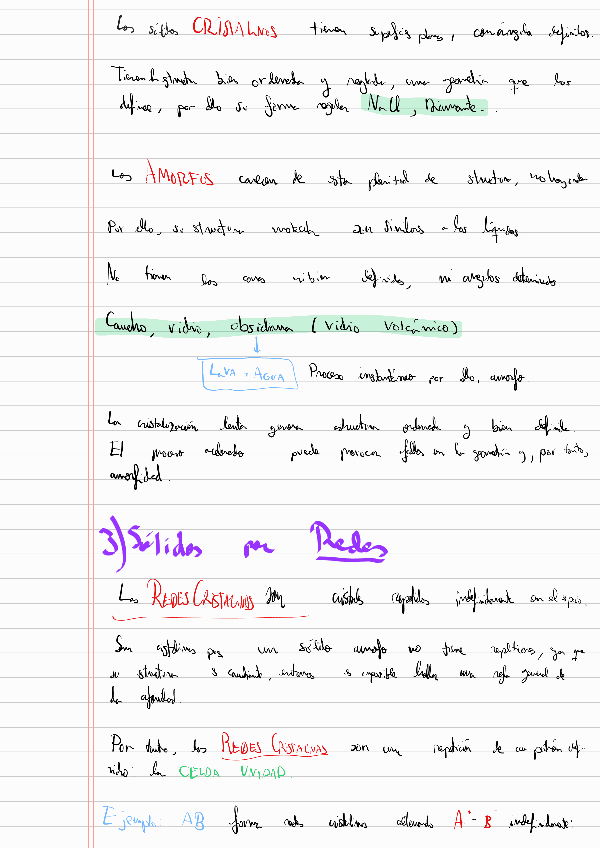 Los sólidos CRISTALINOS tienen superficies planas, con ángulos definidos.
Tienen la geometría bien ordenada y reglada, una geometría que los
define, por ello su forma regular NaCl, Diamante.
Los AMORFOS carecen de esta de structura, no hay
Por ello, su structura molecular son similares a los líquidos
No tienen las caras definidas, ni angulos determinados
Caucho, vidrio, obsidiana (vidrio volcánico)
LAVA + AGUA Proceso instantáneo por ello, amorfo
La cristalización lenta genera estructura ordenada y bien definida.
El proceso acelerado puede provocar fallos en la geometría y, por tanto,
amorfidad.
3) Sólidos por Redes
Las REDES CRISTALINAS son cristales repetidos indefinidamente en el espacio.
Son cristalinos pues un sólido amorfo no tiene repeticiones, ya que
su structura es cambiante, entonces es imposible hallar una regla general de
la
Por tanto, las REDES CRISTALINAS son una repetición de un patrón defi-
nido: la CELDA UNIDAD.
Ejemplo: AB forma redes cristalinas A+-B- indefinidamente: